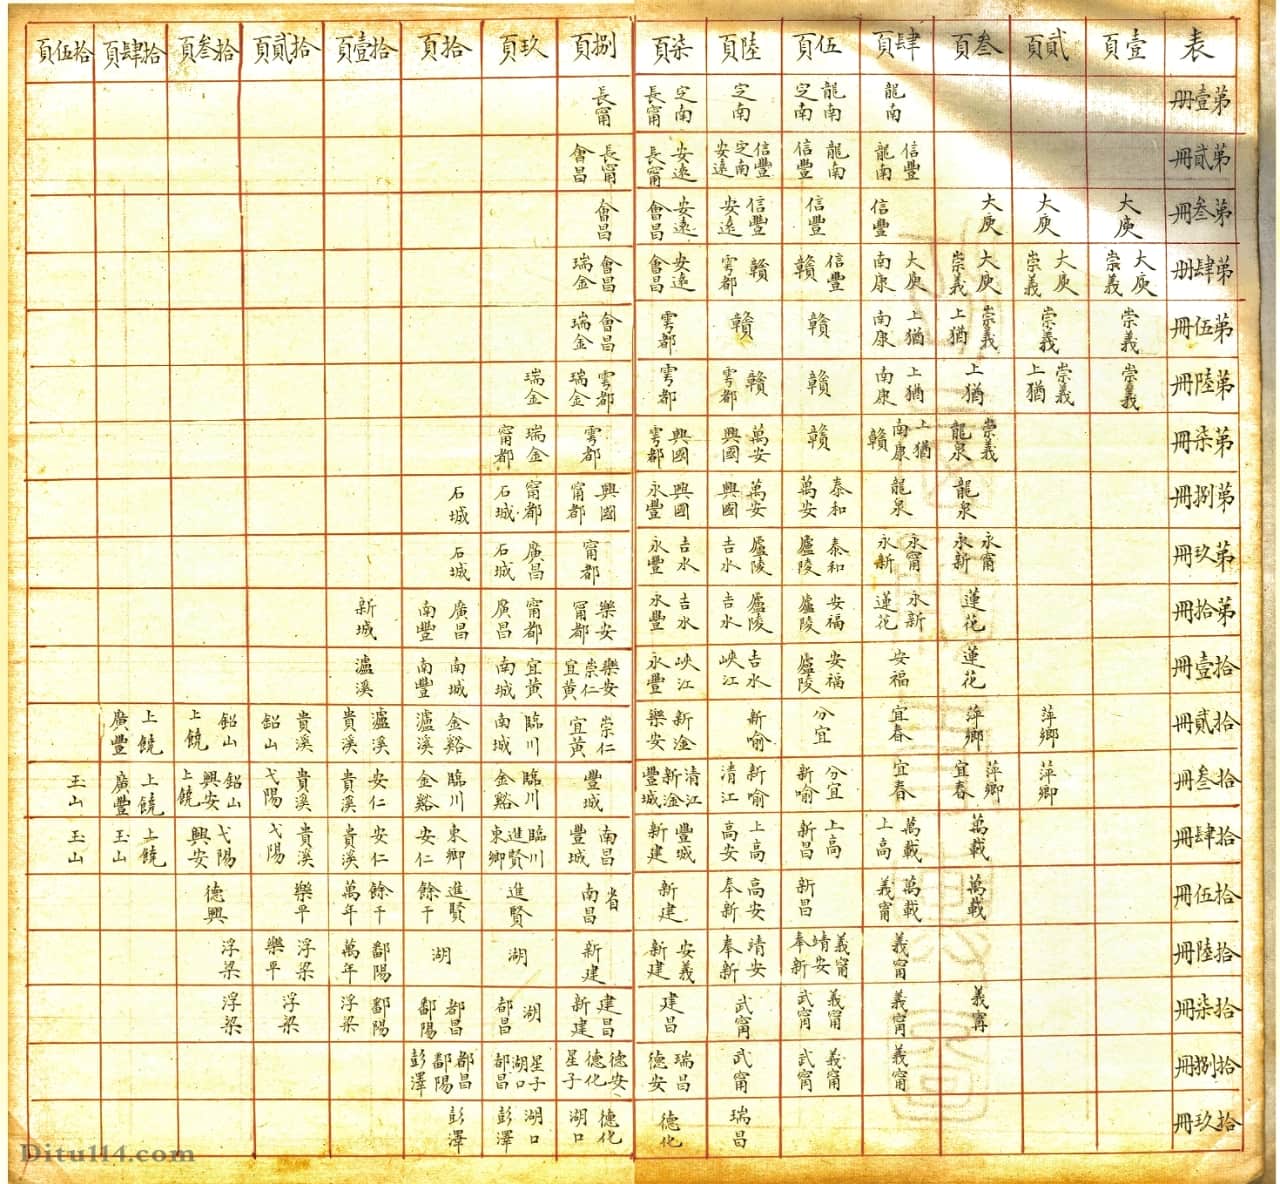 表 壹頁 貳頁 叁頁 肆頁 伍頁 陸頁 柒頁 捌頁 玖頁 拾頁 拾壹頁 拾貳頁 拾叁頁 拾肆頁 拾伍頁
第壹冊 龍南 龍南 定南 定南 定南 長甯 長甯
第貳冊 信豐 龍南 龍南 信豐 信豐 定南 安遠 安遠 長甯 長甯 會昌
第叁冊 大庾 大庾 大庾 信豐 信豐 信豐 安遠 安遠 會昌 會昌
第肆冊 大庾 崇義 大庾 崇義 大庾 崇義 大庾 南康 信豐 贛 贛 雩都 安遠 會昌 會昌 瑞金
第伍冊 崇義 崇義 崇義 上猶 上猶 南康 贛 贛 雩都 會昌 瑞金
第陸冊 崇義 崇義 上猶 上猶 上猶 南康 贛 贛 雩都 雩都 雩都 瑞金 瑞金
第柒冊 崇義 龍泉 上猶 南康 贛 贛 萬安 興國 興國 雩都 雩都 瑞金 甯都
第捌冊 龍泉 龍泉 泰和 萬安 萬安 興國 興國 永豐 興國 甯都 甯都 石城 石城
第玖冊 永甯 永新 永甯 永新 泰和 廬陵 廬陵 吉水 吉水 永豐 甯都 廣昌 石城 石城
第拾冊 蓮花 永新 蓮花 安福 廬陵 廬陵 吉水 吉水 永豐 樂安 甯都 甯都 廣昌 廣昌 南豐 新城
拾壹冊 蓮花 安福 安福 廬陵 吉水 峽江 峽江 永豐 樂安 崇仁 宜黃 宜黃 南城 南城 南豐 瀘溪
拾貳冊 萍鄉 萍鄉 宜春 分宜 新喻 新淦 樂安 崇仁 宜黃 臨川 南城 金谿 瀘溪 瀘溪 貴溪 貴溪 鉛山 鉛山 上饒 上饒 廣豐
拾叁冊 萍鄉 萍鄉 宜春 宜春 分宜 新喻 新喻 清江 清江 新淦 豐城 豐城 臨川 金谿 臨川 金谿 安仁 貴溪 貴溪 弋陽 鉛山 興安 上饒 上饒 廣豐 玉山
拾肆冊 萬載 萬載 上高 上高 新昌 上高 高安 豐城 新建 南昌 豐城 臨川 進賢 東鄉 東鄉 安仁 安仁 貴溪 貴溪 弋陽 弋陽 興安 上饒 玉山 玉山
拾伍冊 萬載 萬載 義甯 新昌 高安 奉新 新建 省 南昌 進賢 進賢 餘干 餘干 萬年 樂平 德興
拾陸冊 義甯 義甯 靖安 奉新 靖安 奉新 安義 新建 新建 湖 湖 鄱陽 萬年 浮梁 樂平 浮梁
拾柒冊 義甯 義甯 義甯 武甯 武甯 建昌 建昌 新建 湖 都昌 都昌 鄱陽 鄱陽 浮梁 浮梁 浮梁
拾捌冊 義甯 義甯 武甯 武甯 瑞昌 德安 德安 德化 星子 星子 湖口 都昌 都昌 鄱陽 彭澤
拾玖冊 瑞昌 德化 德化 湖口 湖口 彭澤 彭澤
Ditu114.com